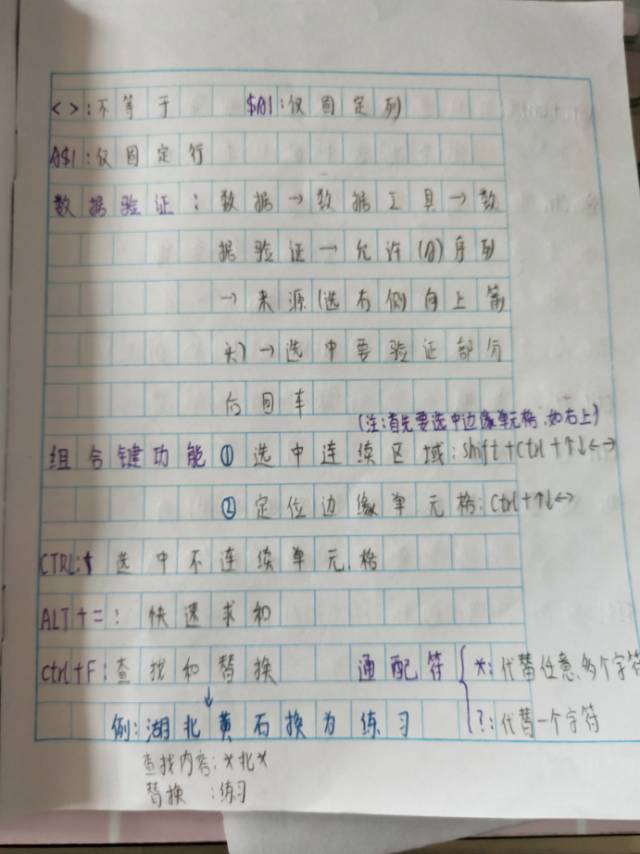 <>:不等于 $A1:仅固定列
A$1:仅固定行
数据验证:数据→数据工具→数
据验证→允许(A)序列
→来源(选右侧向上箭
头)→选中要验证部分
后回车
(注:首先要选中边缘单元格,如右上)
组合键功能①选中连续区域:shift+ctrl+↑↓←→
②定位边缘单元格:ctrl+↑↓←→
CTRL:选中不连续单元格
ALT+=:快速求和
ctrl+F:查找和替换 通配符{*:代替任意多个字符
↓
例:湖北黄石换为练习 ?:代替一个字符
查找内容:*北*
替换:练习